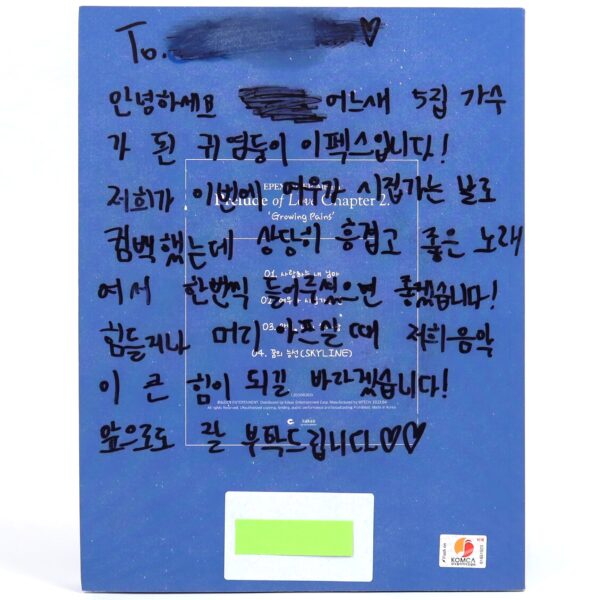 To. ♡
안녕하세요 어느새 5집 가수
가 된 귀염둥이 이펙스입니다!
저희가 이번에 여우가 시집가는 날로
컴백했는데 상당히 흥겹고 좋은 노래
여서 한번씩 들어주셨으면 좋겠습니다!
힘들거나 머리 아프실 때 저희 음악
이 큰 힘이 되길 바라겠습니다!
앞으로도 잘 부탁드립니다♡♡
EPEX
Prelude of Love Chapter 2.
'Growing Pains'
01. 사랑하는 내
02. 여우가
03.
04. 꿈의 능선(SKYLINE)
KOMCA